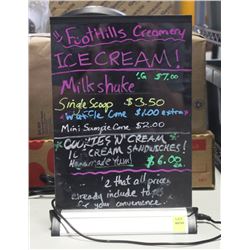 Foothills Creamery
ICE CREAM!
Milkshake LG $7.00
Single Scoop $3.50
*Waffle Cone $1.00 extra*
Mini Sample Cone $2.00
COOKIES N' CREAM
ICE CREAM SANDWICHES!
Homemade Yum! $6.00
that all prices
already include tax
for your convenience.